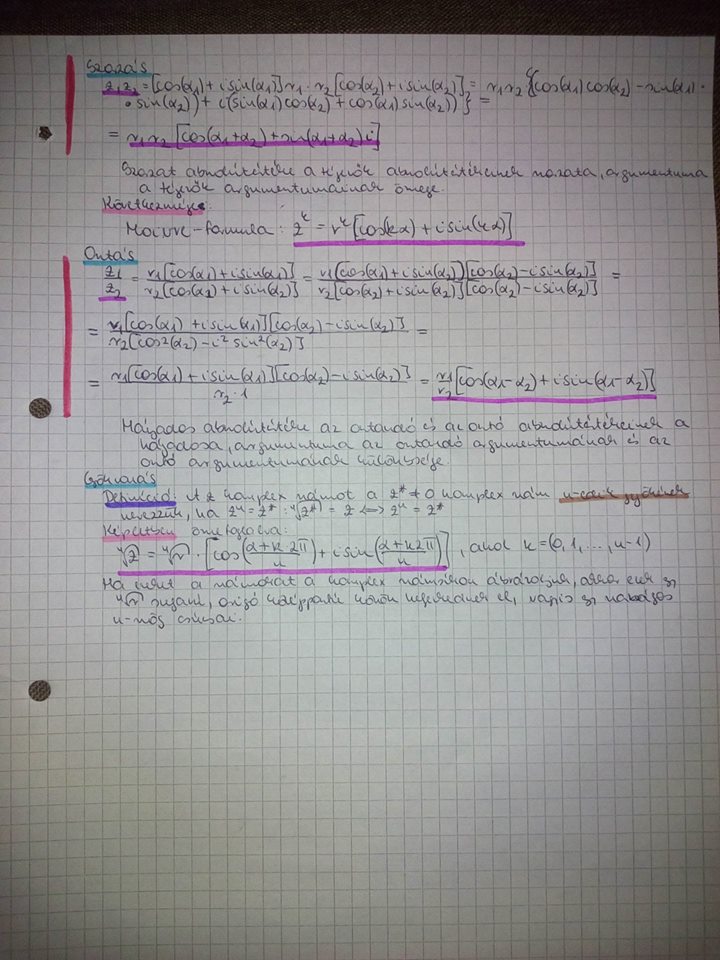 Szorzás
z₁z₂ = [cos(α₁)+i sin(α₁)] r₁ · r₂ [cos(α₂)+i sin(α₂)] = r₁r₂ {(cos(α₁)cos(α₂) - sin(α₁) ·
· sin(α₂)) + i(sin(α₁)cos(α₂) + cos(α₁)sin(α₂))} =
= r₁r₂ [cos(α₁+α₂) + sin(α₁+α₂)i]
Szorzat abszolútértéke a tényezők abszolútértékeinek szorzata, argumentuma
a tényezők argumentumainak összege.
Következménye:
Moivre-formula: zᵏ = rᵏ [cos(kα) + i sin(kα)]
Osztás
z₁/z₂ = r₁[cos(α₁)+i sin(α₁)] / r₂[cos(α₂)+i sin(α₂)] = r₁[cos(α₁)+i sin(α₁)][cos(α₂)-i sin(α₂)] / r₂[cos(α₂)+i sin(α₂)][cos(α₂)-i sin(α₂)] =
= r₁[cos(α₁)+i sin(α₁)][cos(α₂)-i sin(α₂)] / r₂[cos²(α₂)-i² sin²(α₂)] =
= r₁[cos(α₁)+i sin(α₁)][cos(α₂)-i sin(α₂)] / r₂·1 = r₁/r₂ [cos(α₁-α₂)+i sin(α₁-α₂)]
Hányados abszolútértéke az osztandó és az osztó abszolútértékeinek a
hányadosa, argumentuma az osztandó argumentumának és az
osztó argumentumának különbsége.
Gyökvonás
Definíció: A z komplex számot a z* ≠ 0 komplex szám n-edik gyökének
nevezzük, ha zⁿ = z* : ⁿ√z* = z ⟺ zⁿ = z*
Képletben összefoglalva:
ⁿ√z = ⁿ√r · [cos((α+k2π)/n) + i sin((α+k2π)/n)], ahol k = (0, 1, ..., n-1)
Ha ezeket a számokat a komplex számsíkon ábrázoljuk, akkor ezek egy
ⁿ√r sugarú, origó középpontú körön helyezkednek el, vagyis egy szabályos
n-szög csúcsai.